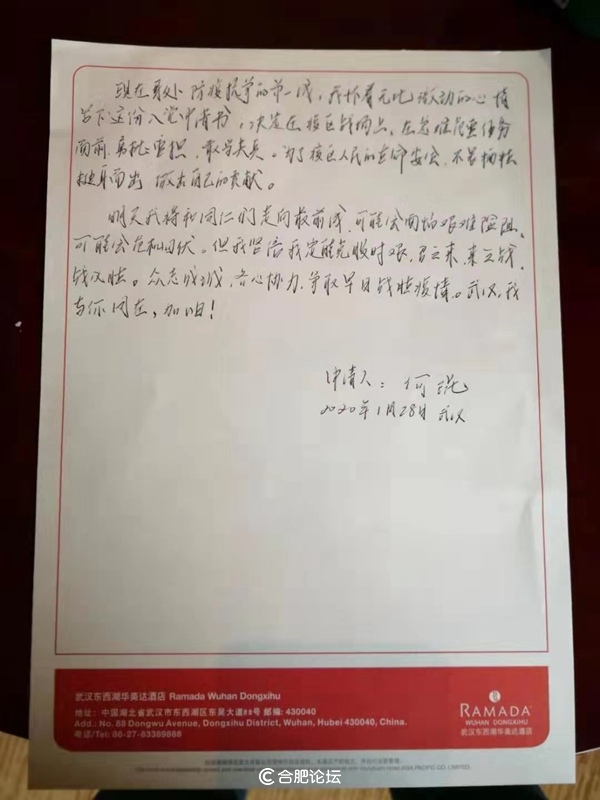 现在身处防疫抗争的第一线，我怀着无比激动的心情
写下这份入党申请书，决定在疫区战场上，在急难险重任务
面前，勇挑重担，敢当尖兵。为了疫区人民的生命安全，不畏牺牲
挺身而出 做出自己的贡献。
明天我将和同仁们走向最前线，可能会面临艰难险阻，
可能会危机四伏，但我坚信我定能克服时艰，召之来，来之战，
战必胜。众志成城，齐心协力，争取早日战胜疫情。武汉，我
与你同在，加油！
申请人：何
2020年1月28日 武汉
武汉东西湖华美达酒店 Ramada Wuhan Dongxihu
地址：中国湖北省武汉市东西湖区东吴大道88号 邮编：430040
Add.: No. 88 Dongwu Avenue, Dongxihu District, Wuhan, Hubei 430040, China.
电话/Tel: 86-27-83389888
RAMADA
WUHAN DONGXIHU
武汉东西湖华美达酒店
合肥论坛